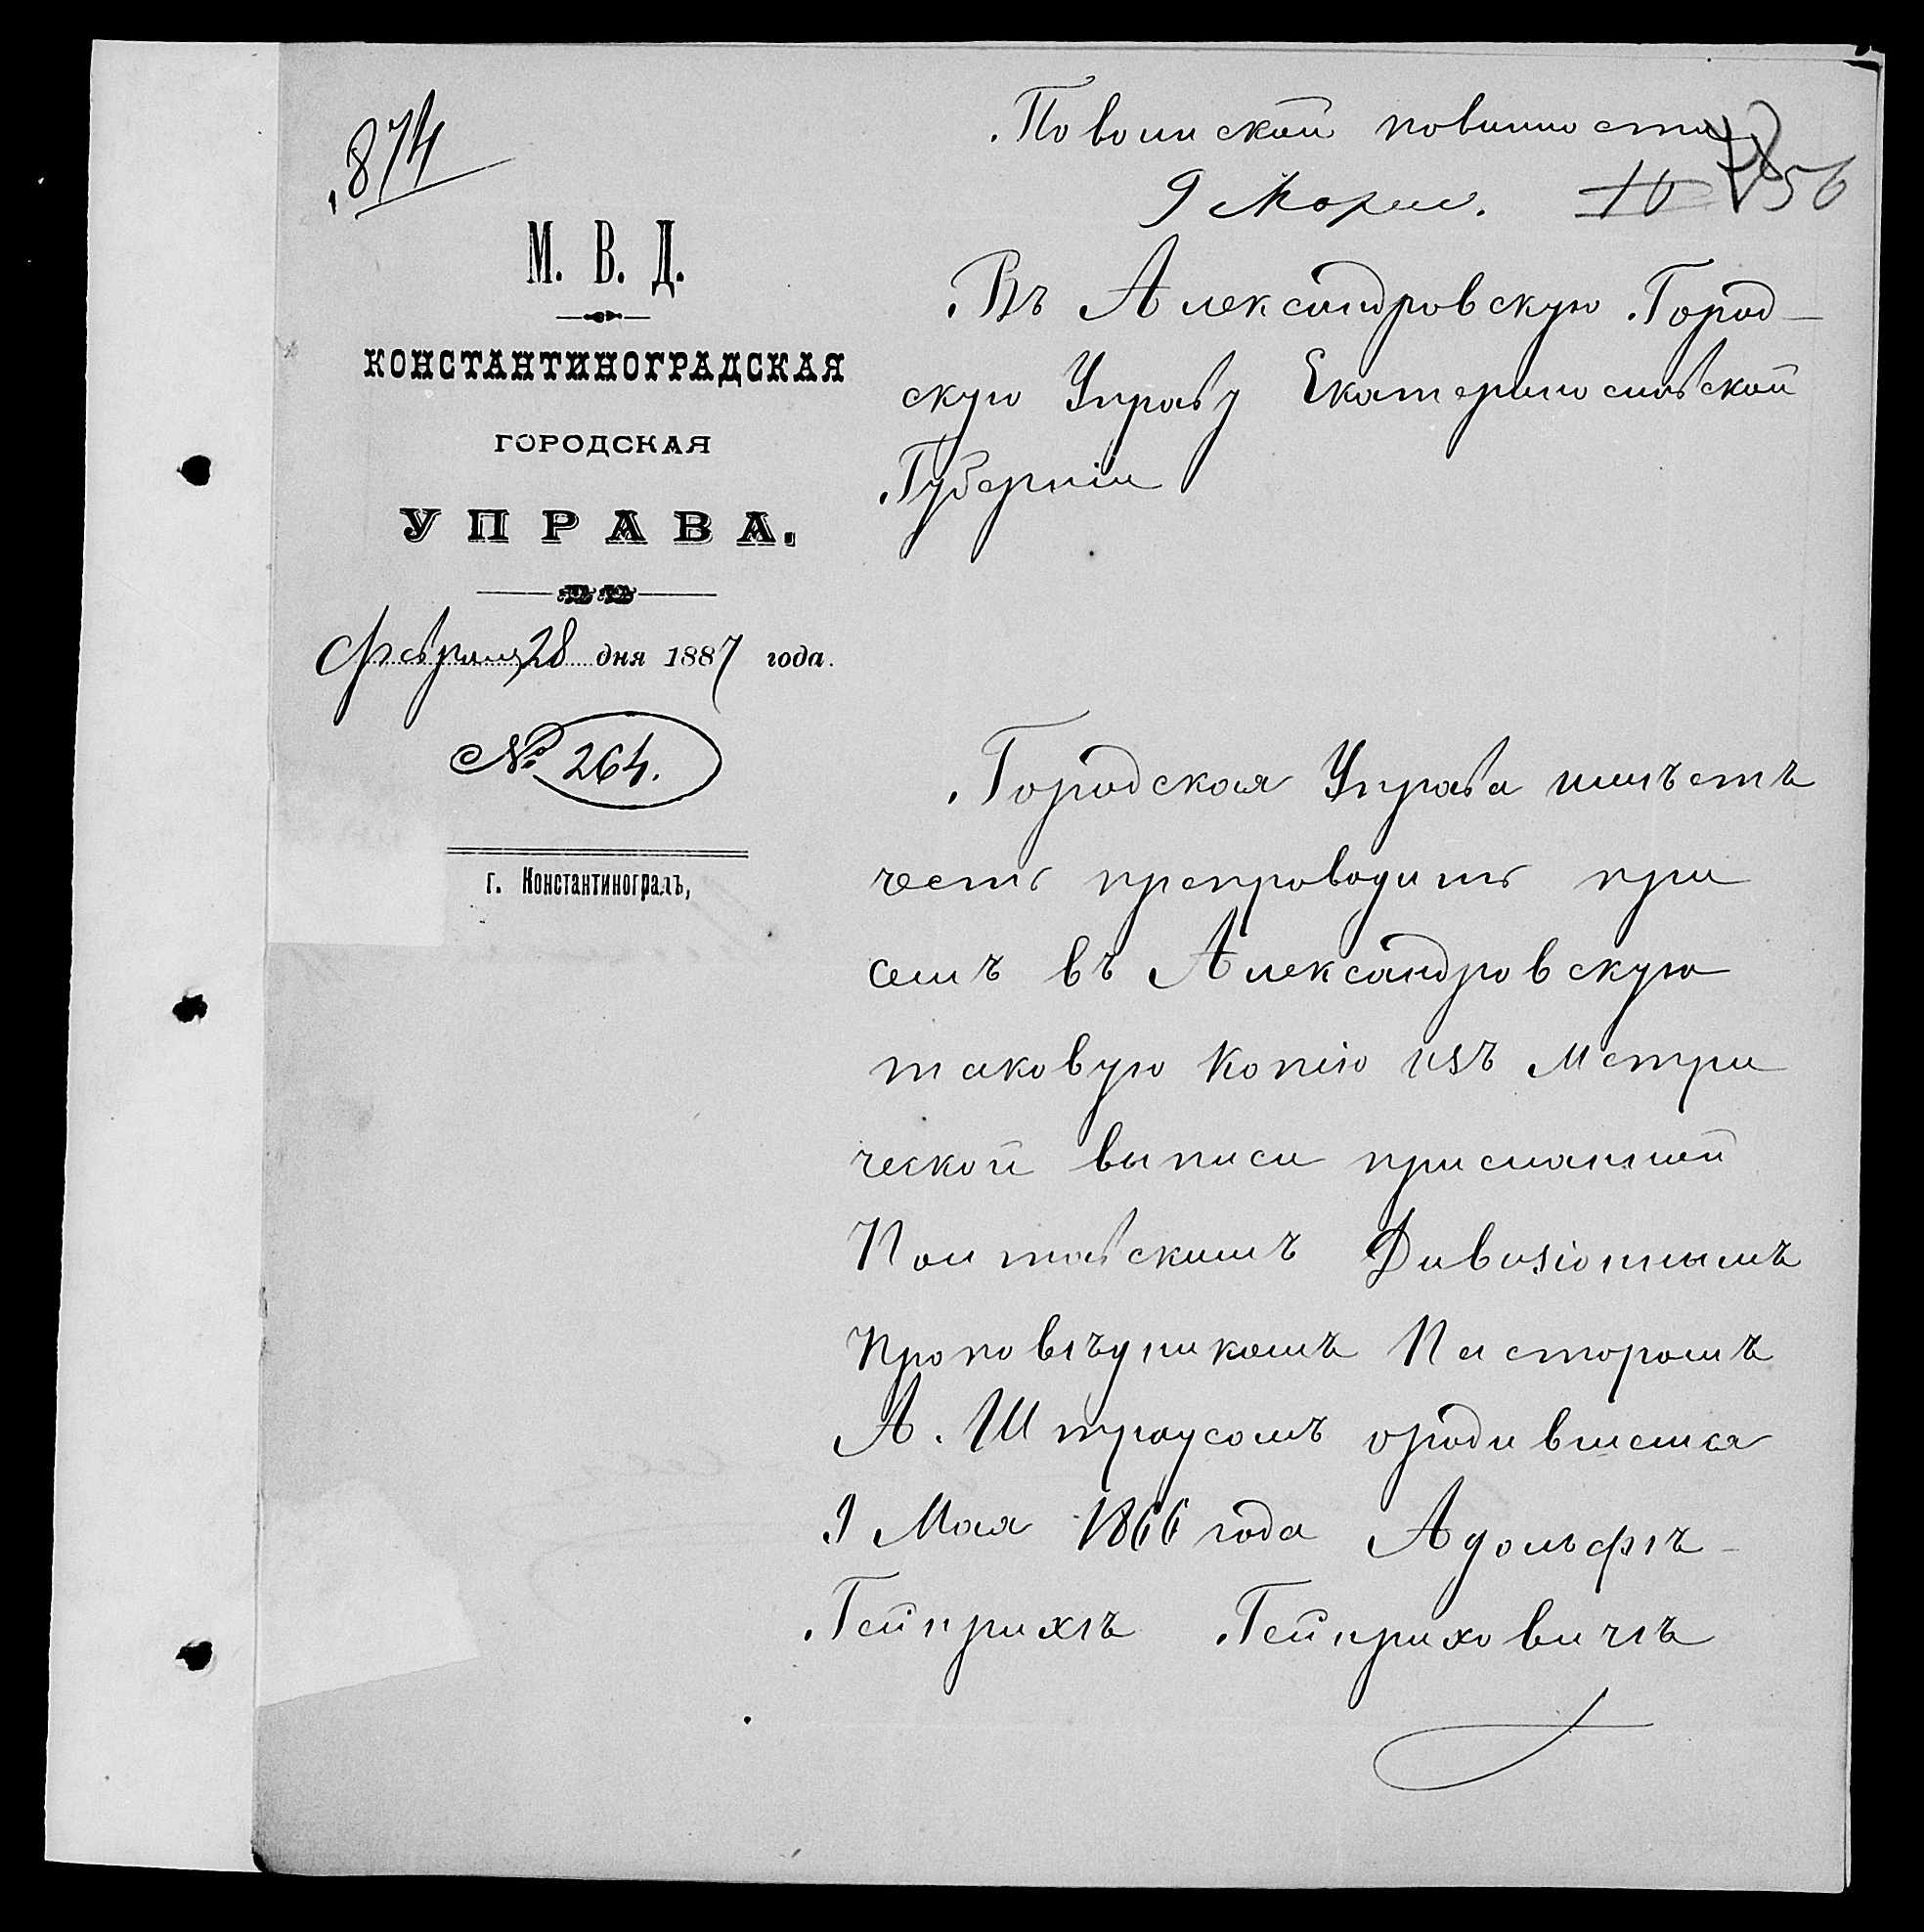 874
По воинской повинности
9 Марта.
10
56
М. В. Д.
КОНСТАНТИНОГРАДСКАЯ
ГОРОДСКАЯ
УПРАВА.
Февраля 28 дня 1887 года.
№ 264.
г. Константиноградъ,
Въ Александровскую Город-
скую Управу Екатеринославской
Губерніи
Городская Управа имѣетъ
честь препроводить при
семъ въ Александровскую
таковую Копію изъ Метри
ческой выписи присланной
Полтавскимъ Дивизіоннымъ
Проповѣдникомъ Пасторомъ
А. Штраусомъ о родившемся
9 Мая 1866 года Адольфѣ-
Гейнрихѣ Гейнриховичѣ